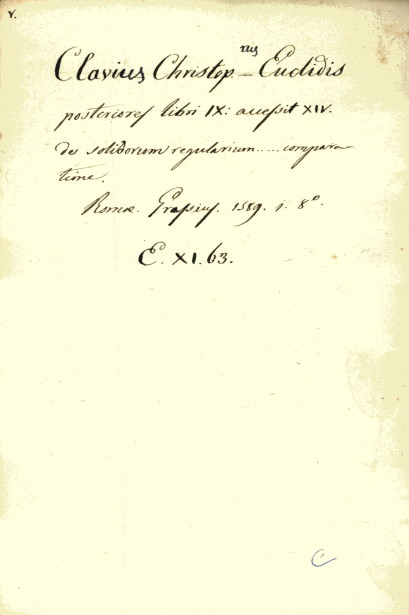 Y.
Clavius Christop.rus – Euclidis
posteriores libri IX: accessit XIV.
de solidorum regularium ..... compara-
tione.
Romæ. Grassius. 1589. i. 8º.
E. XI. 63.
C